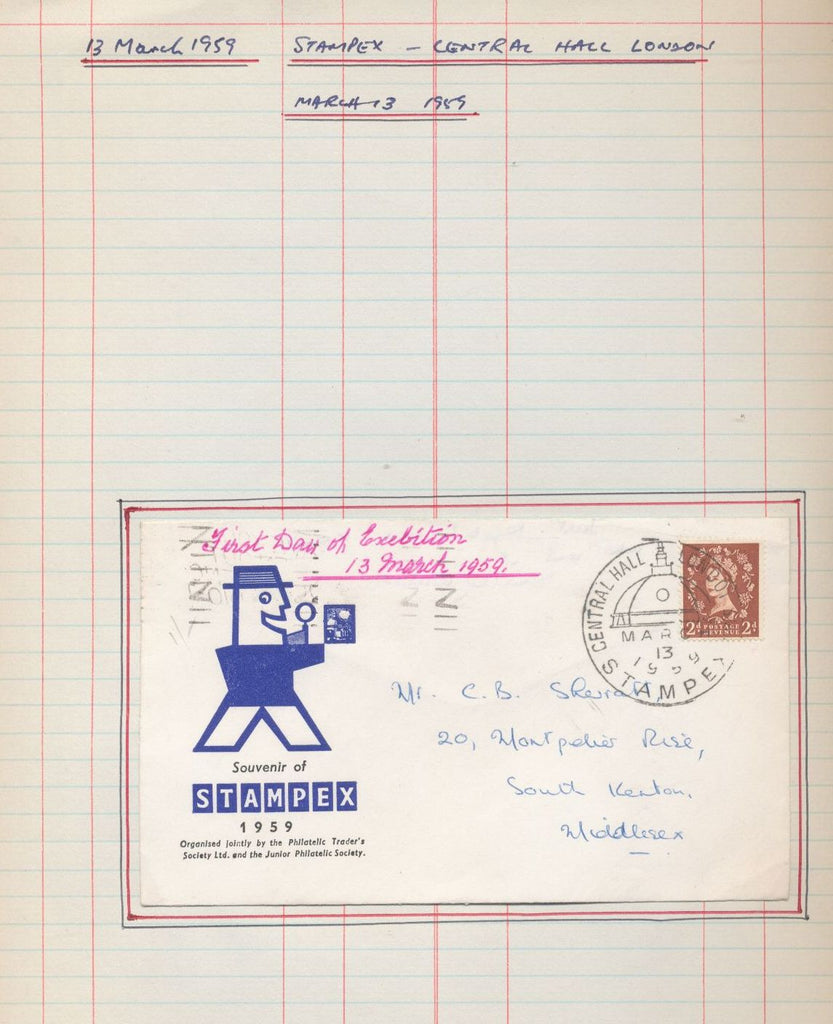 13 March 1959 STAMPEX - CENTRAL HALL LONDON
MARCH 13 1959.
First Day of Exebition
13 March 1959.
CENTRAL HALL LONDON
MARCH
13
1959
STAMPEX
2d POSTAGE REVENUE 2d
Mr. C.B.
20, Montpelier Rise,
South Kenton,
Middlesex
Souvenir of
STAMPEX
1959
Organised jointly by the Philatelic Trader's
Society Ltd. and the Junior Philatelic Society.